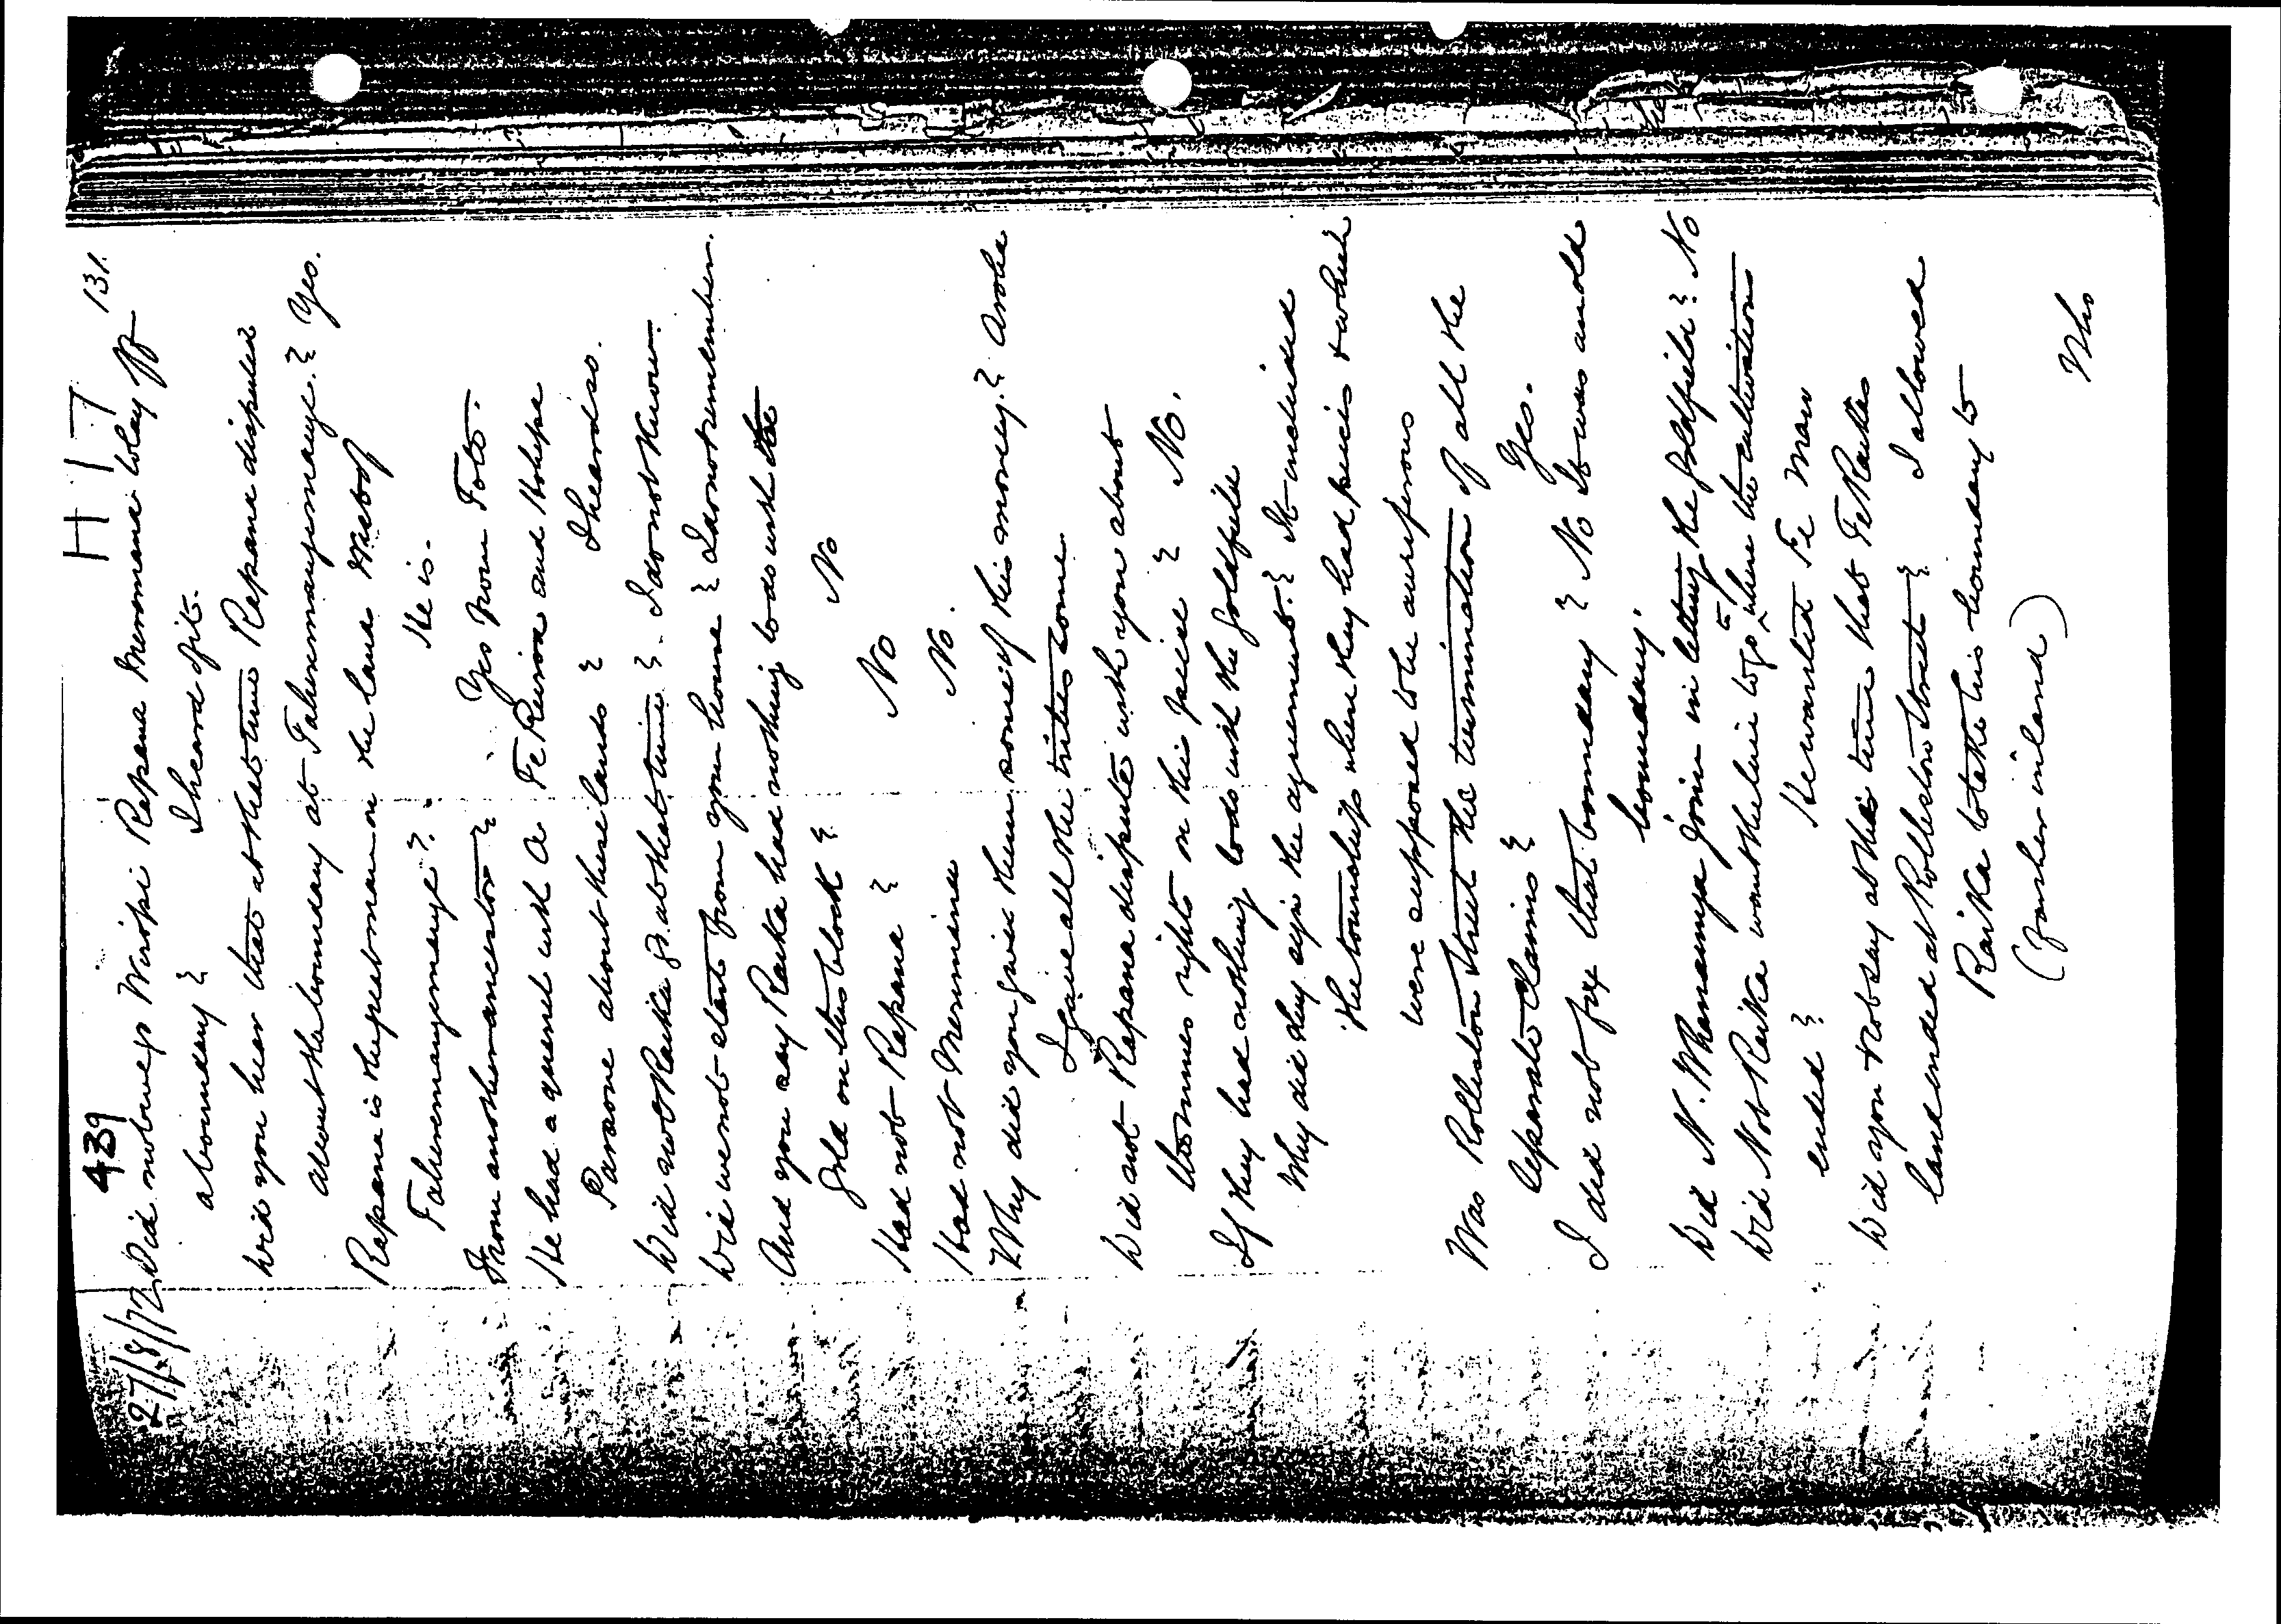 439 H I T 131.
27/8/72 Did not Wiropi Rapana Mureman lay off
a boundary? I heard of it.
Did you hear that at that time Rapana disputed
about the boundary at Tahunamanginangi? Yes.
Rapana is the great man on the land West of
Tahunamanginangi? He is.
From another ancestor? Yes from Toto.
He had a quarrel with A Te Reiroa and Hohepa
Paraone about these lands? I heard so.
Did not Raika go at that time? I do not know.
Did we not start from your house? I do not remember.
And you say Raika had nothing to do with the
gold on this block? No
Had not Rapana? No
Had not Meremana No.
Why did you give them some of this money? Aroha
I gave all the tribes some.
Did not Rapana dispute with you about
Thames rights on this piece? No.
If they had nothing to do with the Goldfield
Why did they sign the agreement? It included
the townships where they had pieces & which
were supposed to be auriferous
Was Rolleston Street the termination of all the
separate claims? Yes.
I did not fix that boundary? No It was an old
boundary.
Did N. Whanaunga join in letting the goldfield? No
Did Not Raika want the line to go to where the cultivation
ended? He wanted Te Mano
Did you not say at this time that Te Raikas
land ended at Rolleston Street? I allowed
Raika to take his boundary to
(further inland)
Who